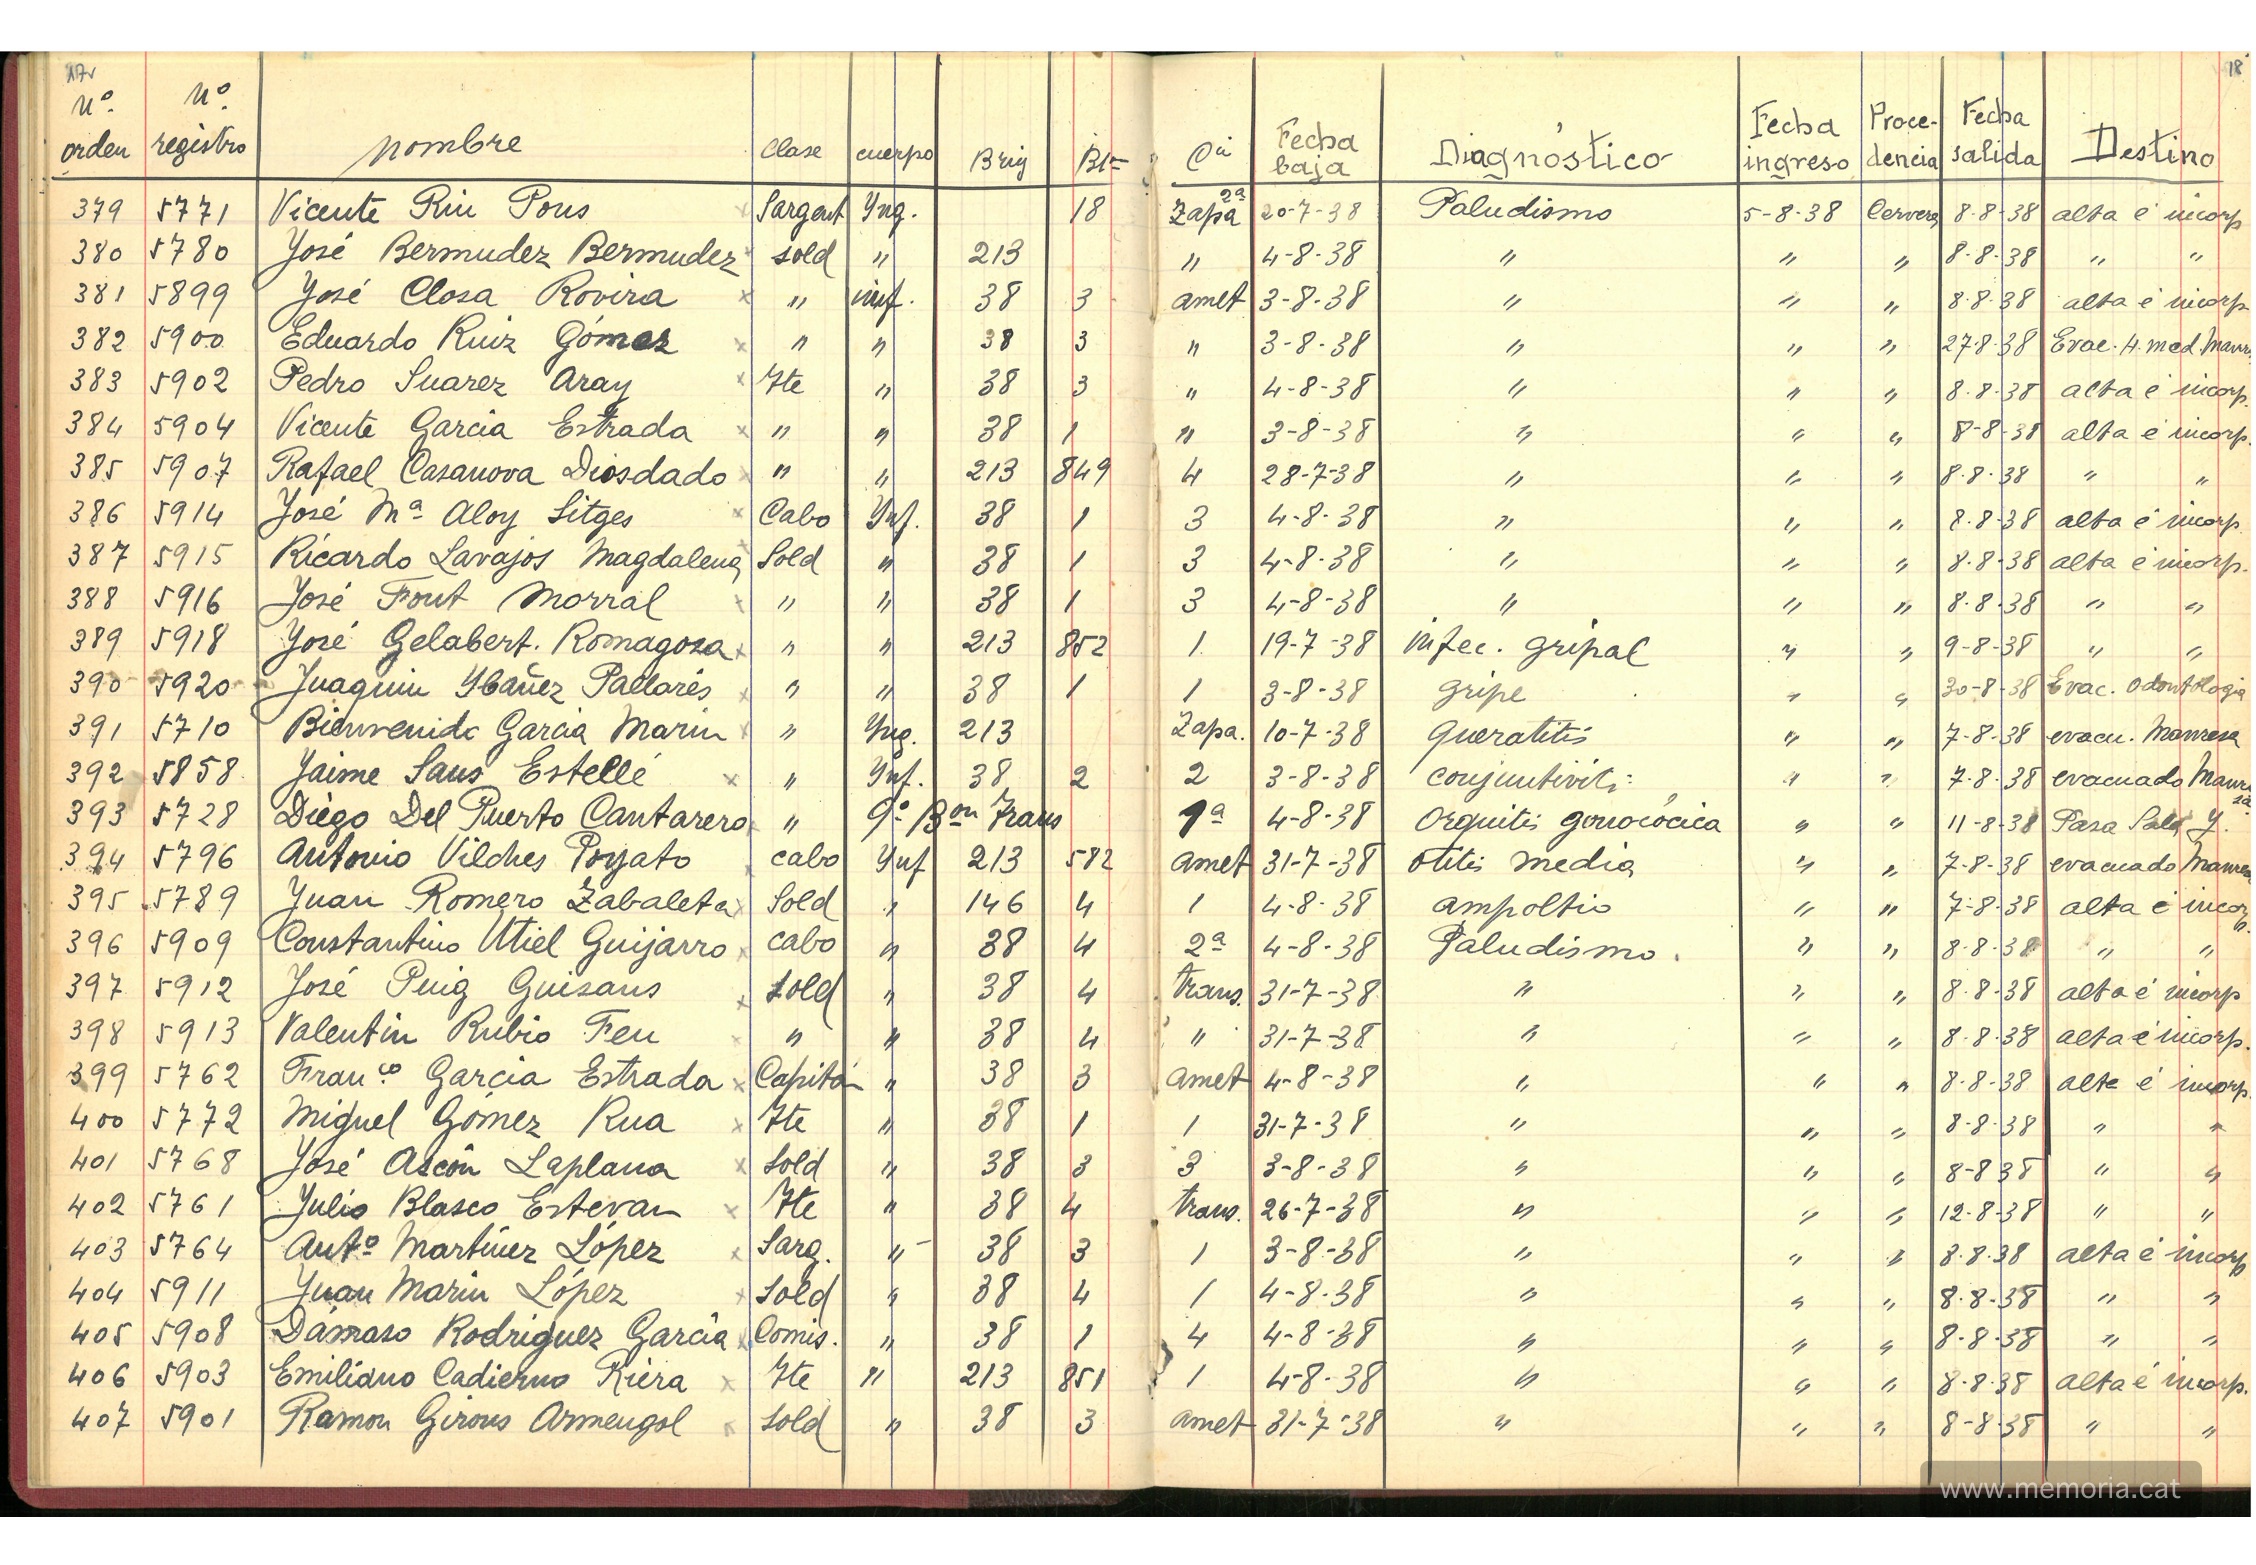 17v 18
Nº orden Nº registro Nombre Clase cuerpo Brig Bón Cía Fecha baja Diagnóstico Fecha ingreso Procedencia Fecha salida Destino
379 5771 Vicente Riu Pons Sargent Yng. 18 2ª Zapa 20-7-38 Paludismo 5-8-38 Cervera 8-8-38 alta é incorp
380 5780 José Bermudez Bermudez sold " 213 " 4-8-38 " " " 8-8-38 " "
381 5899 José Closa Rovira " inf. 38 3 amet 3-8-38 " " " 8-8-38 alta é incorp
382 5900 Eduardo Ruiz Gómez " " 38 3 " 3-8-38 " " " 27-8-38 Evac. H. med. Manr
383 5902 Pedro Suarez Aray Tte " 38 3 " 4-8-38 " " " 8-8-38 alta é incorp.
384 5904 Vicente Garcia Estrada " " 38 1 " 3-8-38 " " " 8-8-38 alta é incorp.
385 5907 Rafael Casanova Diosdado " " 213 849 4 28-7-38 " " " 8-8-38 " "
386 5914 José Mª Aloy Sitges Cabo Ynf. 38 1 3 4-8-38 " " " 8-8-38 alta é incorp
387 5915 Ricardo Lavajos Magdalena Sold " 38 1 3 4-8-38 " " " 8-8-38 alta é incorp.
388 5916 José Font Morral " " 38 1 3 4-8-38 " " " 8-8-38 " "
389 5918 José Gelabert. Romagosa " " 213 852 1 19-7-38 infec. gripal " " 9-8-38 " "
390 5920 Juaquin Ybañez Pallarés " " 38 1 1 3-8-38 gripe " " 30-8-38 Evac. Odontologia
391 5710 Bienvenido Garcia Marin " Yng. 213 Zapa. 10-7-38 Queratitis " " 7-8-38 evacu. Manresa
392 5858 Jaime Sans Estellé " Ynf. 38 2 2 3-8-38 conjuntivit: " " 7-8-38 evacuado Manresa
393 5728 Diego Del Puerto Cantarero " 9º Bon Trans 1ª 4-8-38 Orquitis gonocócica " " 11-8-38 Pasa Sala Y.
394 5796 Antonio Vilches Poyato cabo Ynf 213 582 amet 31-7-38 otitis media " " 7-8-38 evacuado Manresa
395 5789 Juan Romero Zabaleta Sold " 146 4 1 4-8-38 ampoltio " " 7-8-38 alta é incorp.
396 5909 Constantino Utiel Guijarro cabo " 38 4 2ª 4-8-38 Paludismo. " " 8-8-38 " "
397 5912 José Puig Guisans Sold " 38 4 trans. 31-7-38 " " " 8-8-38 alta é incorp
398 5913 Valentin Rubio Feu " " 38 4 " 31-7-38 " " " 8-8-38 alta é incorp.
399 5762 Franco Garcia Estrada Capitán " 38 3 amet 4-8-38 " " " 8-8-38 alta é incorp.
400 5772 Miguel Gómez Rua Tte " 38 1 1 31-7-38 " " " 8-8-38 " "
401 5768 José Ascón Laplana Sold " 38 3 3 3-8-38 " " " 8-8-38 " "
402 5761 Julio Blasco Estevan Tte " 38 4 trans. 26-7-38 " " " 12-8-38 " "
403 5764 Antº Martinez López Sarg. " 38 3 1 3-8-38 " " " 8-8-38 alta é incorp
404 5911 Juan Marin López Sold " 38 4 1 4-8-38 " " " 8-8-38 " "
405 5908 Dámaso Rodriguez Garcia Comis. " 38 1 4 4-8-38 " " " 8-8-38 " "
406 5903 Emiliano Cadierno Riera Tte " 213 851 1 4-8-38 " " " 8-8-38 alta é incorp.
407 5901 Ramon Girons Armengol Sold " 38 3 amet 31-7-38 " " " 8-8-38 " "
www.memoria.cat